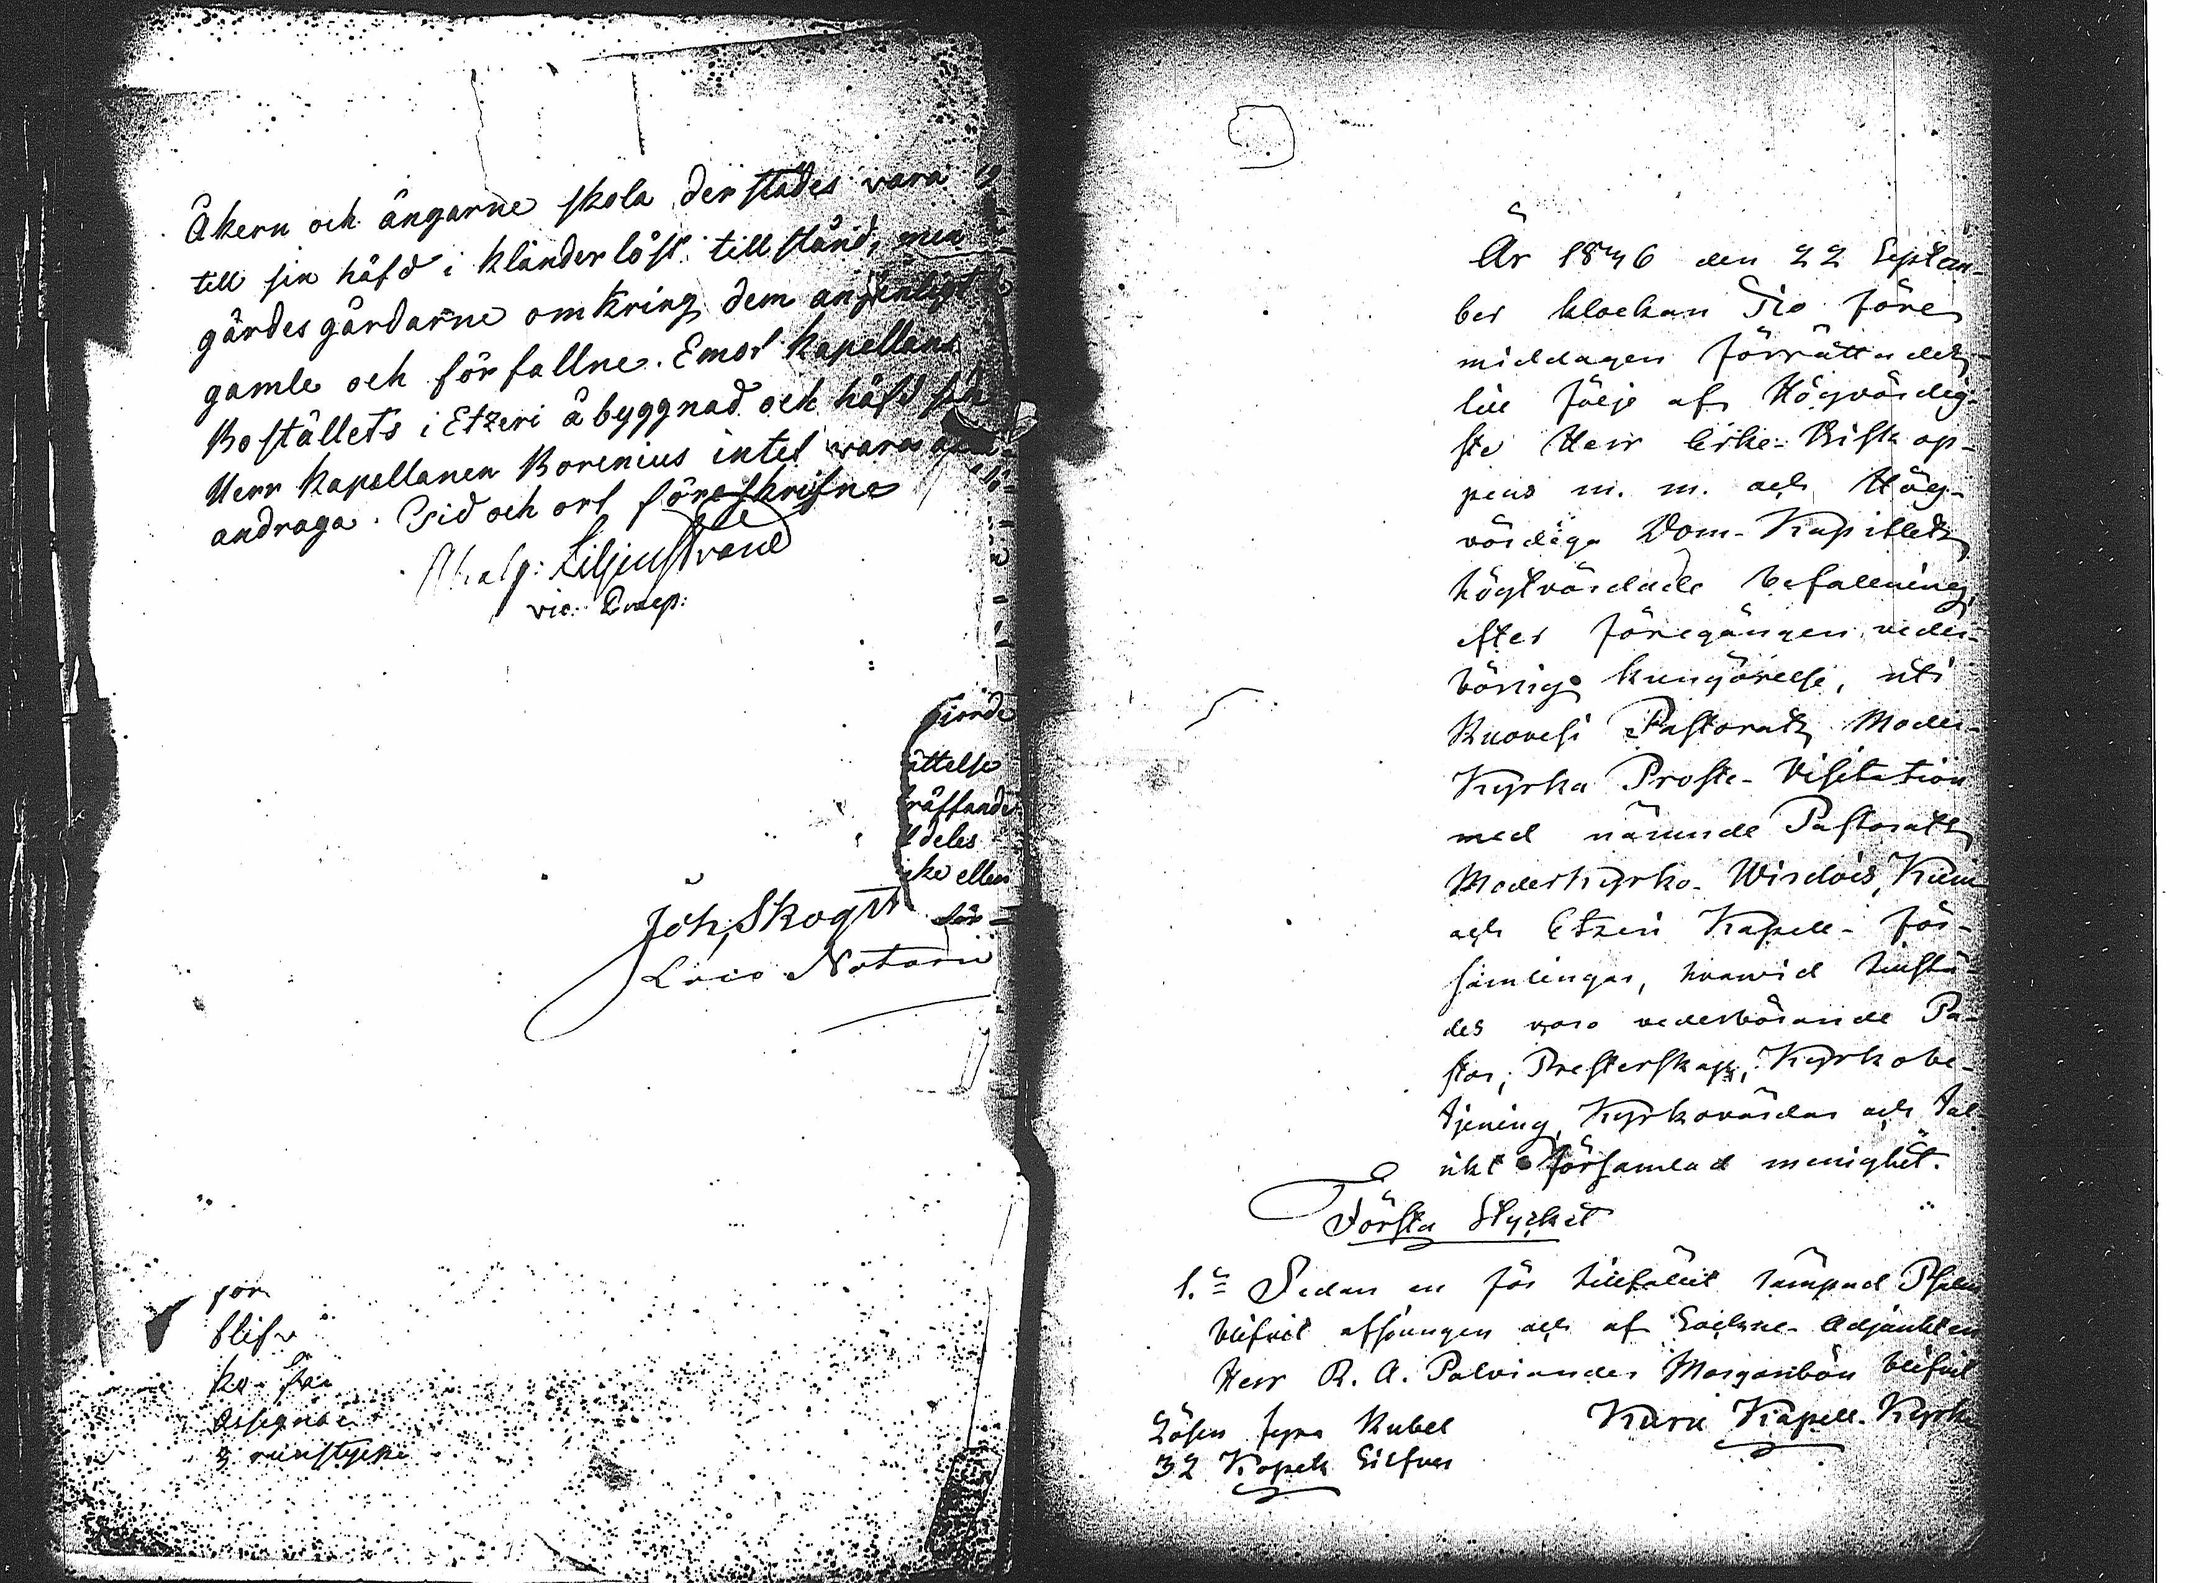 Åkern och ängarne skola derstädes vara
till sin häfd i klanderlöst tillstånd, men
gärdesgårdarne omkring dem ansenligt
gamle och förfallne. Emot Kapellans
Boställets i Etzeri åbyggnad och häfd
Herr Kapellanen Borenius intet wara
andraga. Tid och ort föreskrifne
Liljenstrand
vic. Praep:
giorde
ättelse
räffande
deles
ske eller
för-
Joh. Skogst
Loco Notarii
för
blifv
ko
Assignat
3 runstycke
År 1846 den 22 Septem-
ber klockan Tio före
middagen förrättades
till följe af Högvördig-
ste Herr Erke-Biskop-
pens m. m. och Hög-
vördiga Dom-Kapitlets
högtvördade befallning,
efter föregången veder-
börlig kungörelse, uti
Ruovesi Pastorats Moder-
Kyrka Proste-Visitation
med nämnde Pastorats
Moderkyrko- Wirdois, Kuru
och Etzeri Kapell-för-
samlingar, hvarvid tillstä-
des voro vederbörande Pa-
stor, Presterskap, Kyrkobe-
tjening, Kyrkovärdar och tal-
rikt församlad menighet.
Första Stycket
1. Sedan en för tillfället lämpad Psalm
blifvit afsjungen och af Sockne-Adjunkten
Herr R. A. Palviander Morganbön blifvit
Lösen fyra Rubel
32 Kopek Silfver
Kuru Kapell-Kyrka